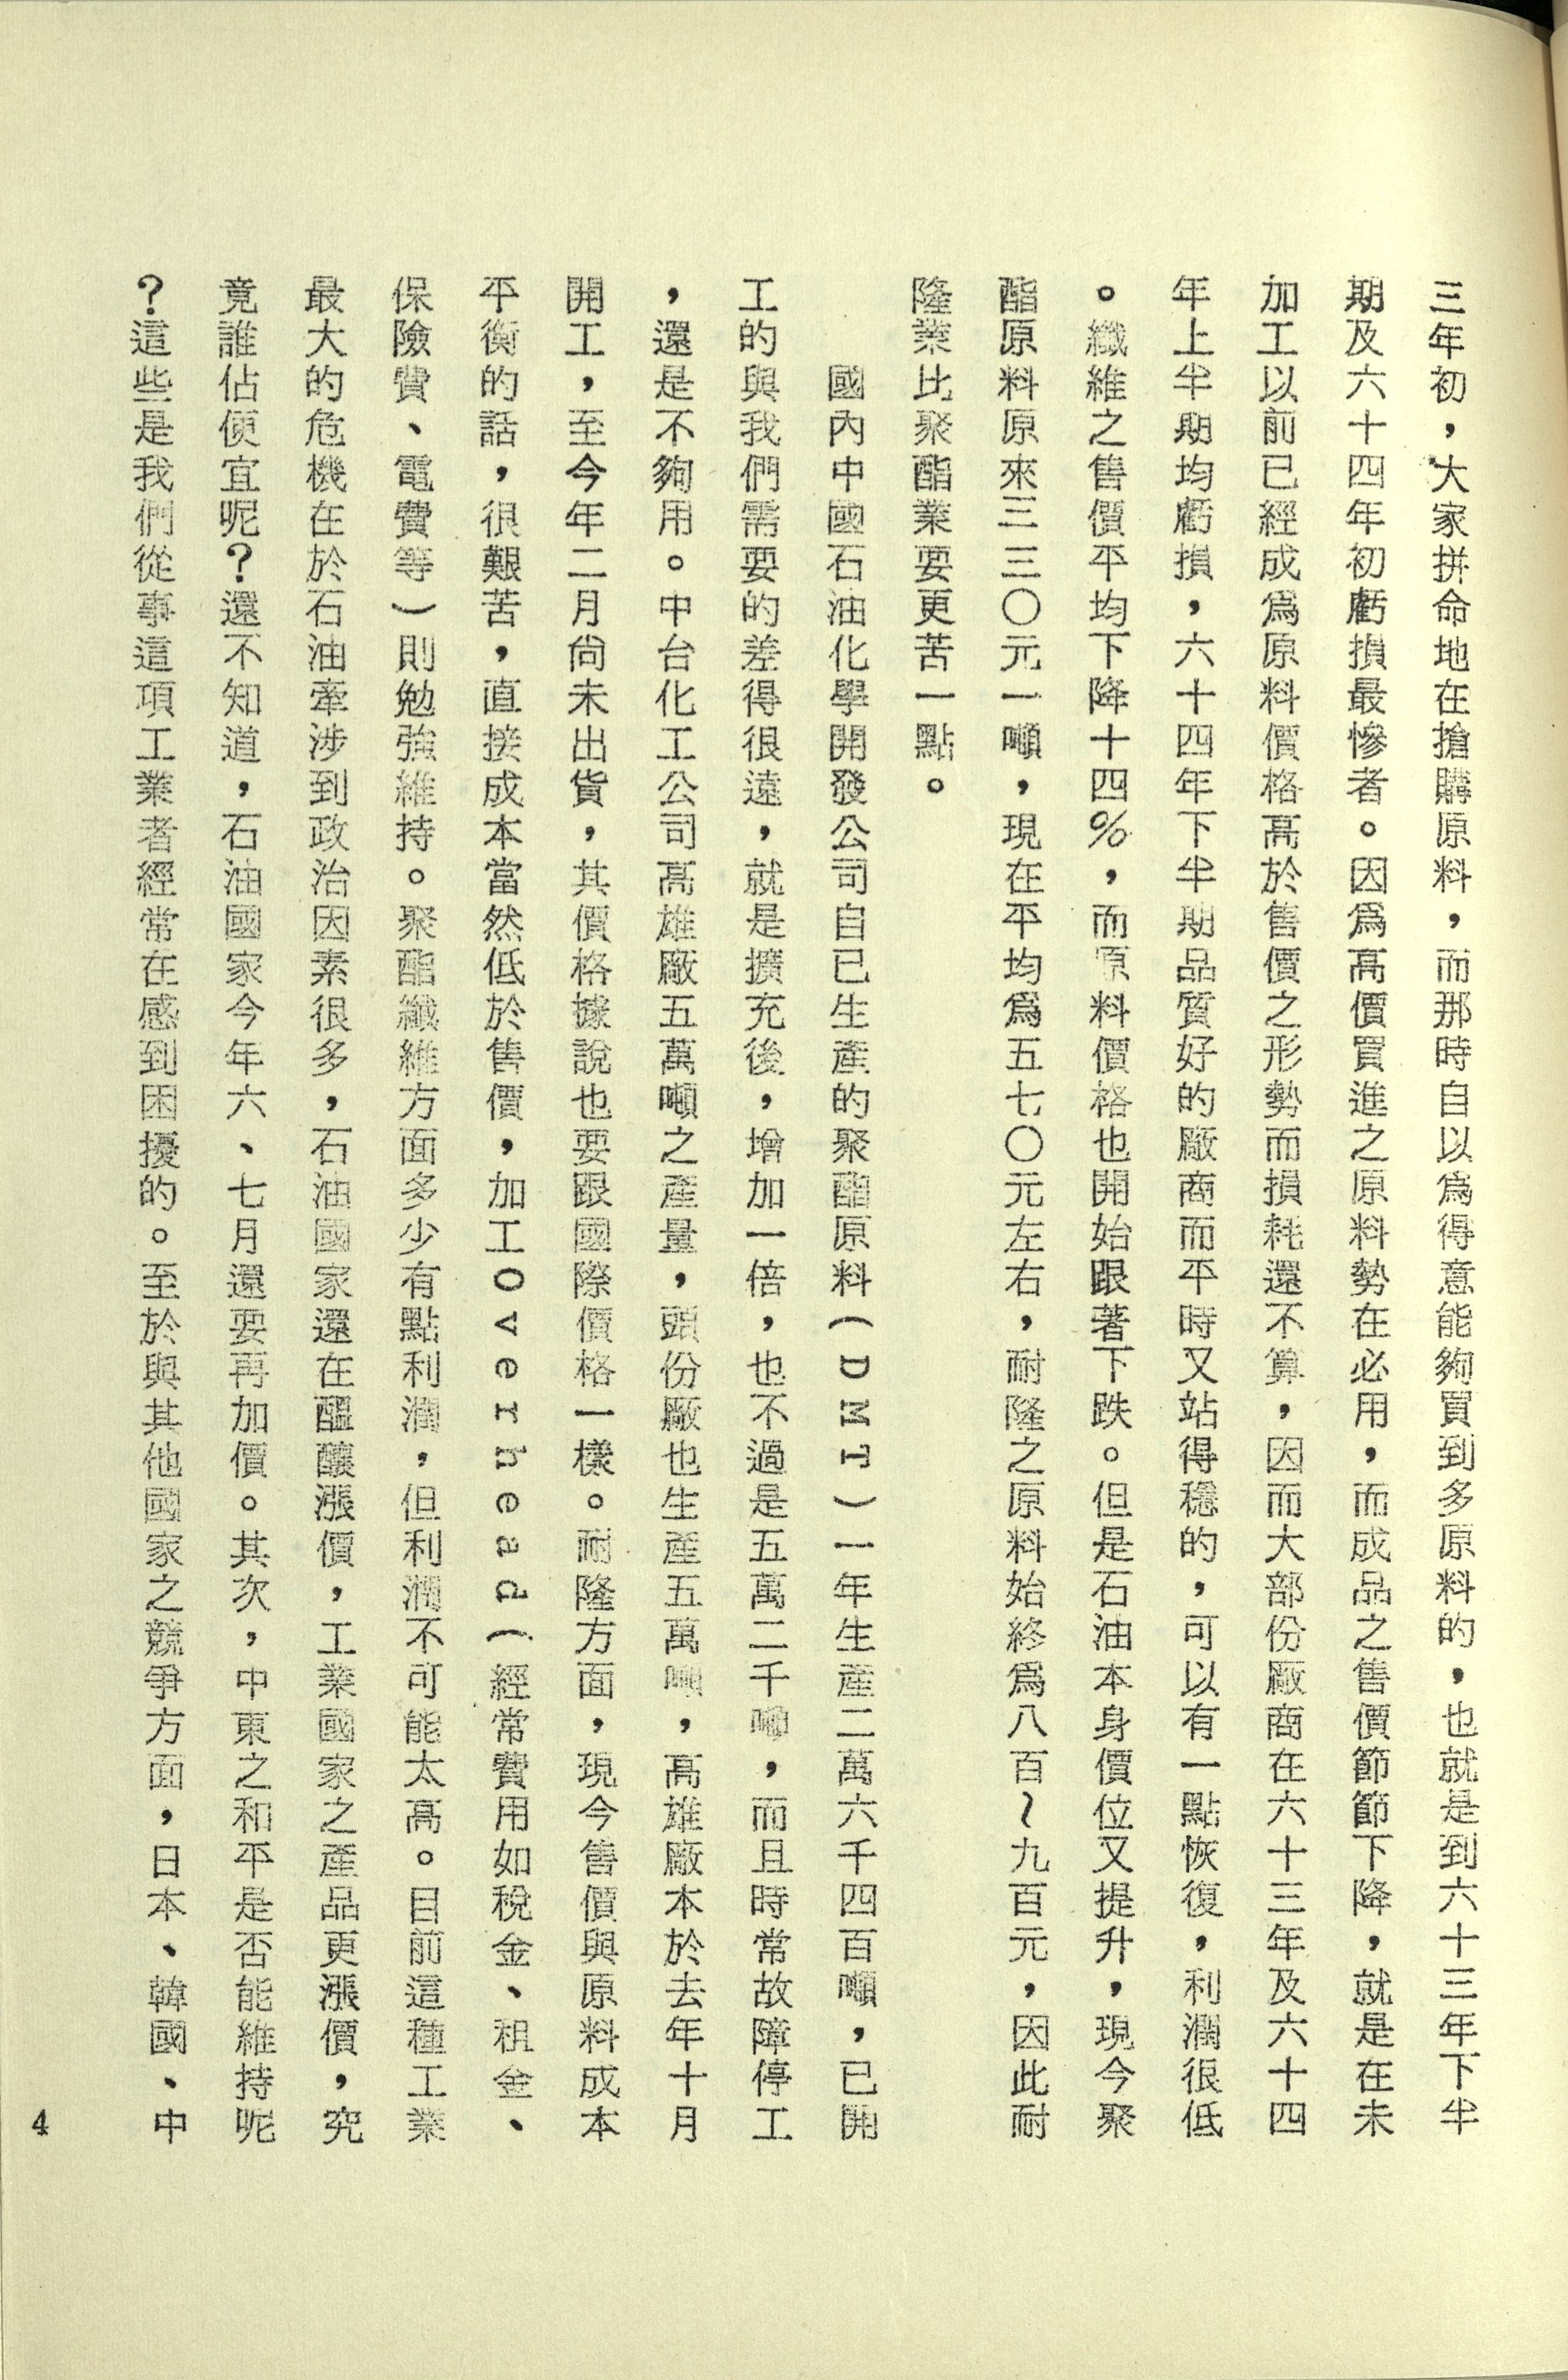 三年初，大家拼命地在搶購原料，而那時自以爲得意能夠買到多原料的，也就是到六十三年下半
期及六十四年初虧損最慘者。因爲高價買進之原料勢在必用，而成品之售價節節下降，就是在未
加工以前已經成爲原料價格高於售價之形勢而損耗還不算，因而大部份廠商在六十三年及六十四
年上半期均虧損，六十四年下半期品質好的廠商而平時又站得穩的，可以有一點恢復，利潤很低
。纖維之售價平均下降十四％，而原料價格也開始跟著下跌。但是石油本身價位又提升，現今聚
酯原料原來三三〇元一噸，現在平均爲五七〇元左右，耐隆之原料始終爲八百～九百元，因此耐
隆業比聚酯業要更苦一點。
國內中國石油化學開發公司自已生產的聚酯原料（DMT）一年生產二萬六千四百噸，已開
工的與我們需要的差得很遠，就是擴充後，增加一倍，也不過是五萬二千噸，而且時常故障停工
，還是不夠用。中台化工公司高雄廠五萬噸之產量，頭份廠也生產五萬噸，高雄廠本於去年十月
開工，至今年二月尙未出貨，其價格據說也要跟國際價格一樣。耐隆方面，現今售價與原料成本
平衡的話，很艱苦，直接成本當然低於售價，加工Overhead（經常費用如稅金、租金、
保險費、電費等）則勉強維持。聚酯纖維方面多少有點利潤，但利潤不可能太高。目前這種工業
最大的危機在於石油牽涉到政治因素很多，石油國家還在醞釀漲價，工業國家之產品更漲價，究
竟誰佔便宜呢？還不知道，石油國家今年六、七月還要再加價。其次，中東之和平是否能維持呢
？這些是我們從事這項工業者經常在感到困擾的。至於與其他國家之競爭方面，日本、韓國、中
4